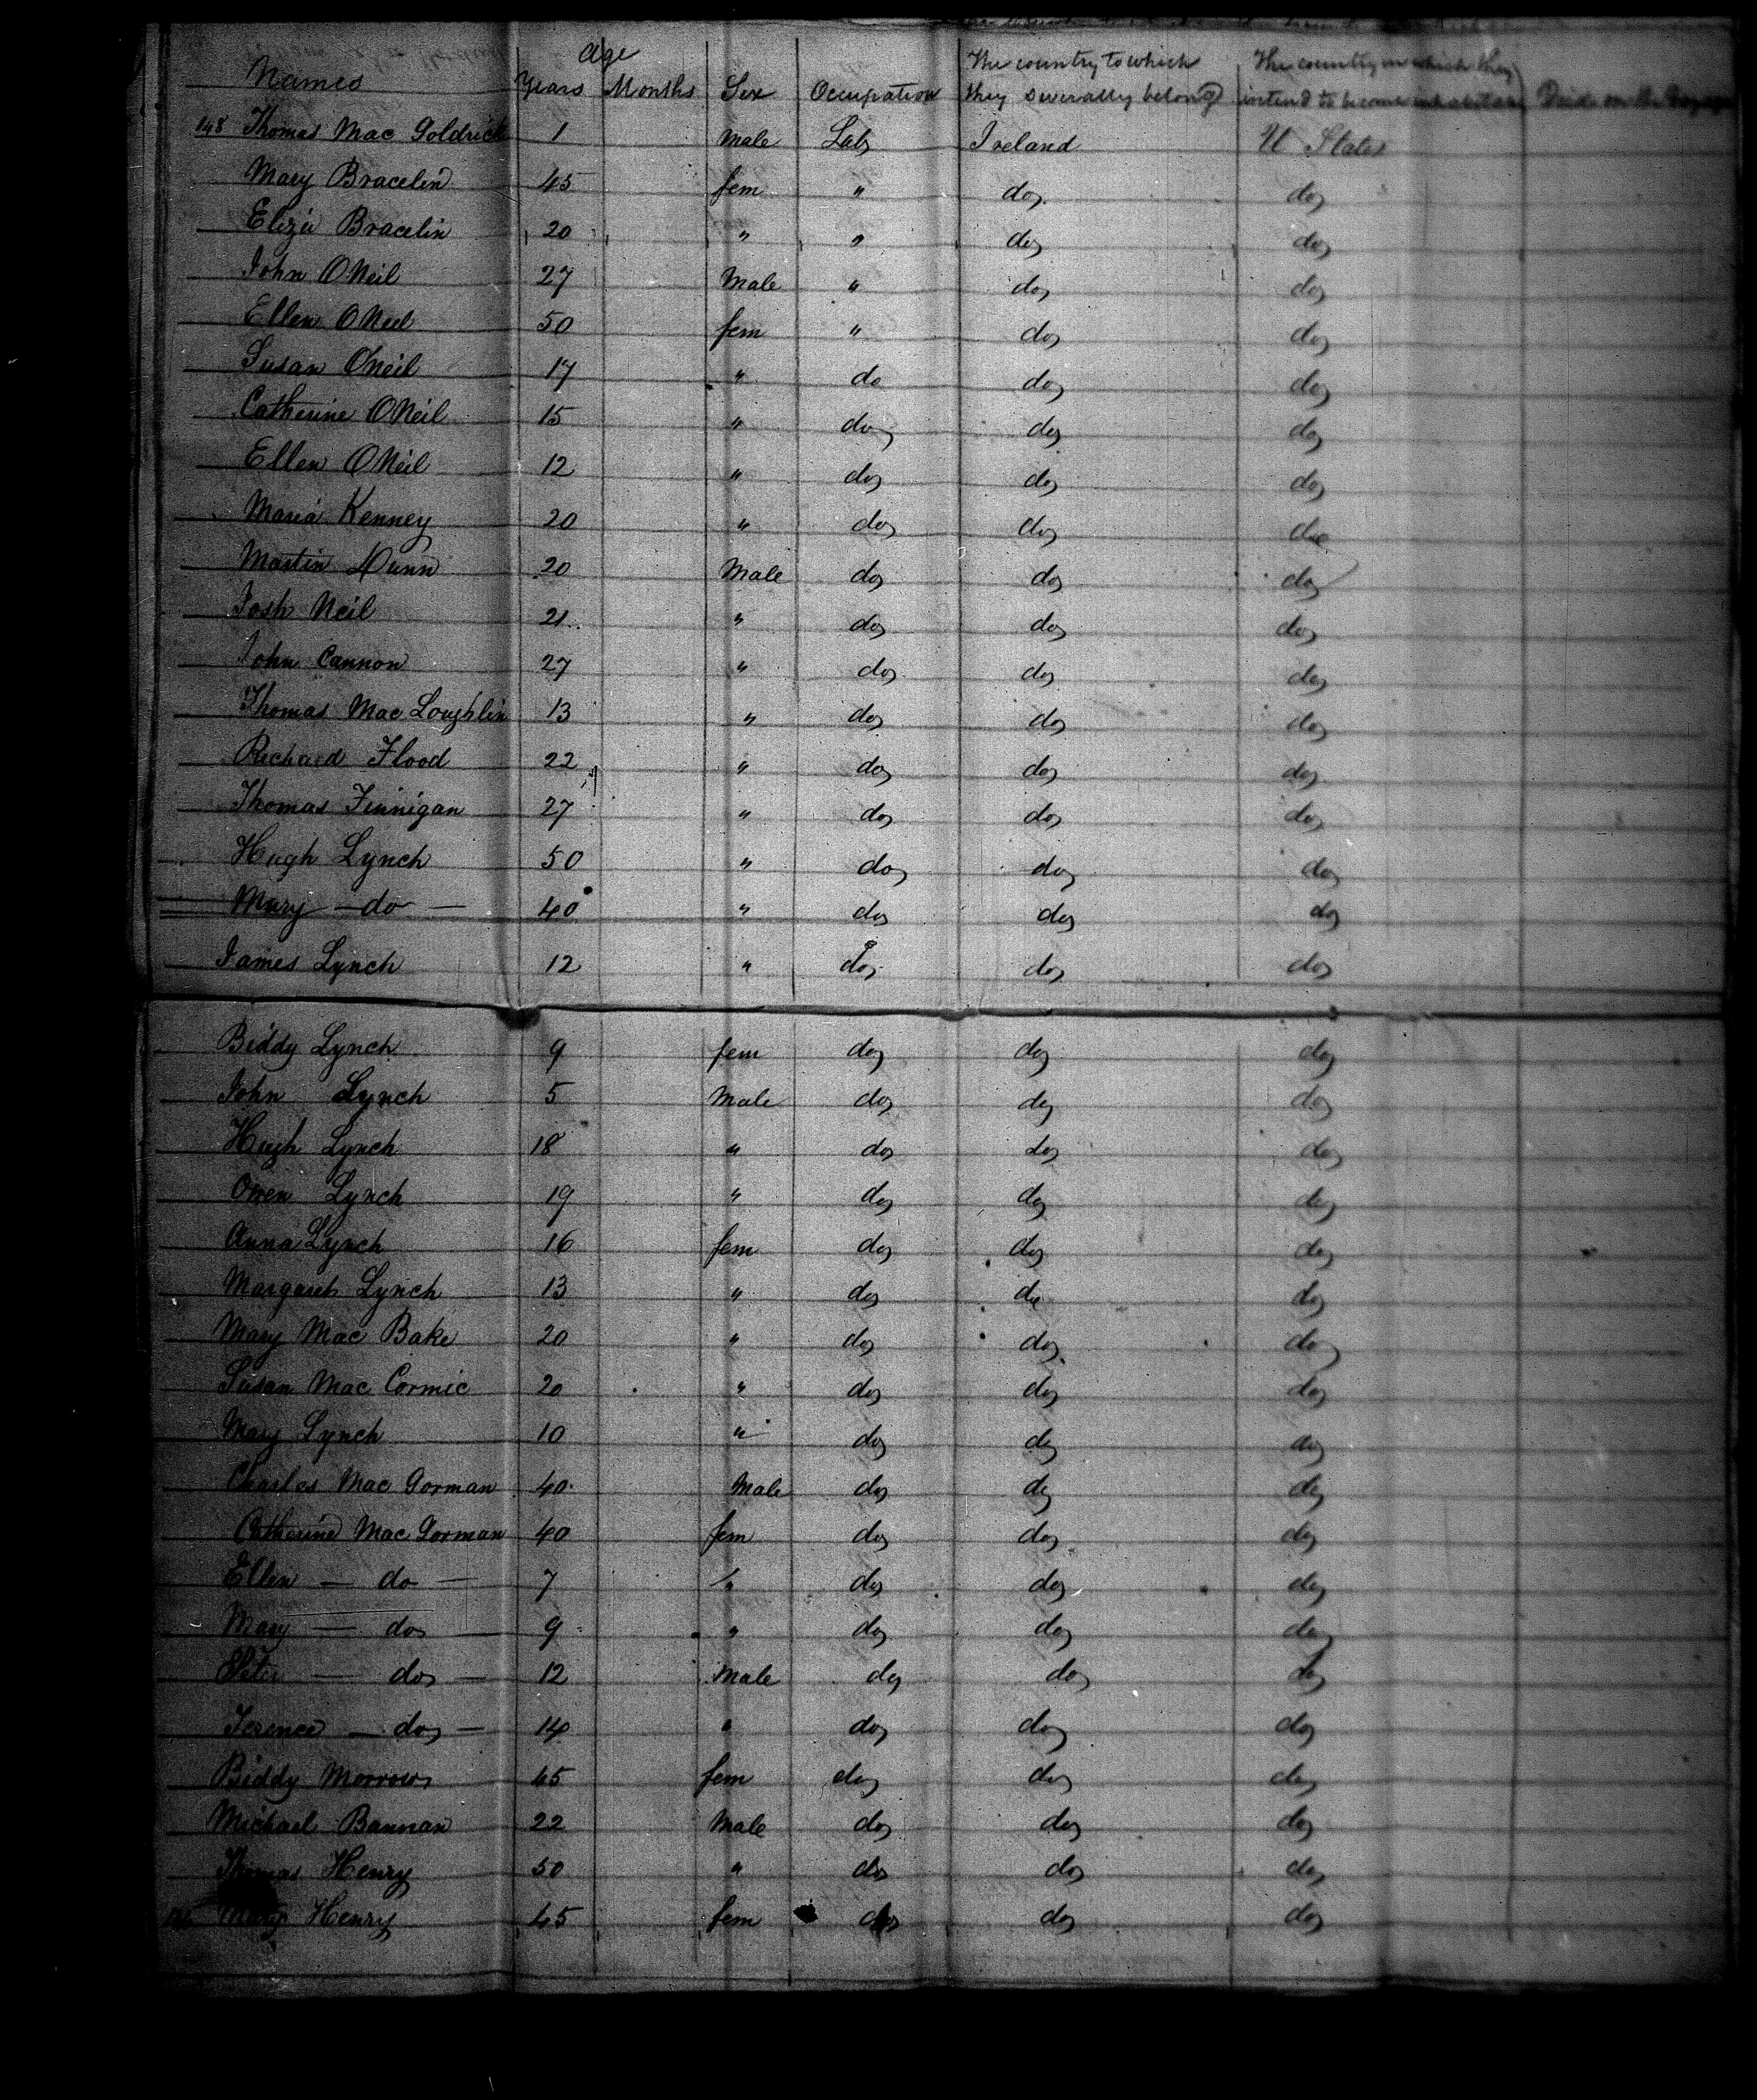 age
The country to which The country in which they
Names Years Months Sex Occupation they severally belong intend to become inhabitants Died on the Voyage
148 Thomas Mac Goldrick 1 Male Lab Ireland U States
Mary Bracelin 45 fem " do do
Eliza Bracelin 20 " " do do
John ONeil 27 Male " do do
Ellen ONeil 50 fem " do do
Susan ONeil 17 " do do do
Catherine ONeil 15 " do do do
Ellen ONeil 12 " do do do
Maria Kenney 20 " do do do
Martin Dunn 20 Male do do do
Josh Neil 21 " do do do
John Cannon 27 " do do do
Thomas Mac Loughlin 13 " do do do
Richard Flood 22 " do do do
Thomas Finnigan 27 " do do do
Hugh Lynch 50 " do do do
Mary - do - 40 " do do do
James Lynch 12 " do do do
Biddy Lynch 9 fem do do do
John Lynch 5 Male do do do
Hugh Lynch 18 " do do do
Owen Lynch 19 " do do do
Anna Lynch 16 fem do do do
Margaret Lynch 13 " do do do
Mary Mac Bake 20 " do do do
Susan Mac Cormic 20 " do do do
Mary Lynch 10 " do do do
Charles Mac Gorman 40 Male do do do
Catherine Mac Gorman 40 fem do do do
Ellen - do - 7 " do do do
Mary - do - 9 " do do do
Peter - do - 12 Male do do do
Terence - do - 14 " do do do
Biddy Morrow 45 fem do do do
Michael Bannan 22 Male do do do
Thomas Henry 50 " do do do
Mary Henry 45 fem do do do